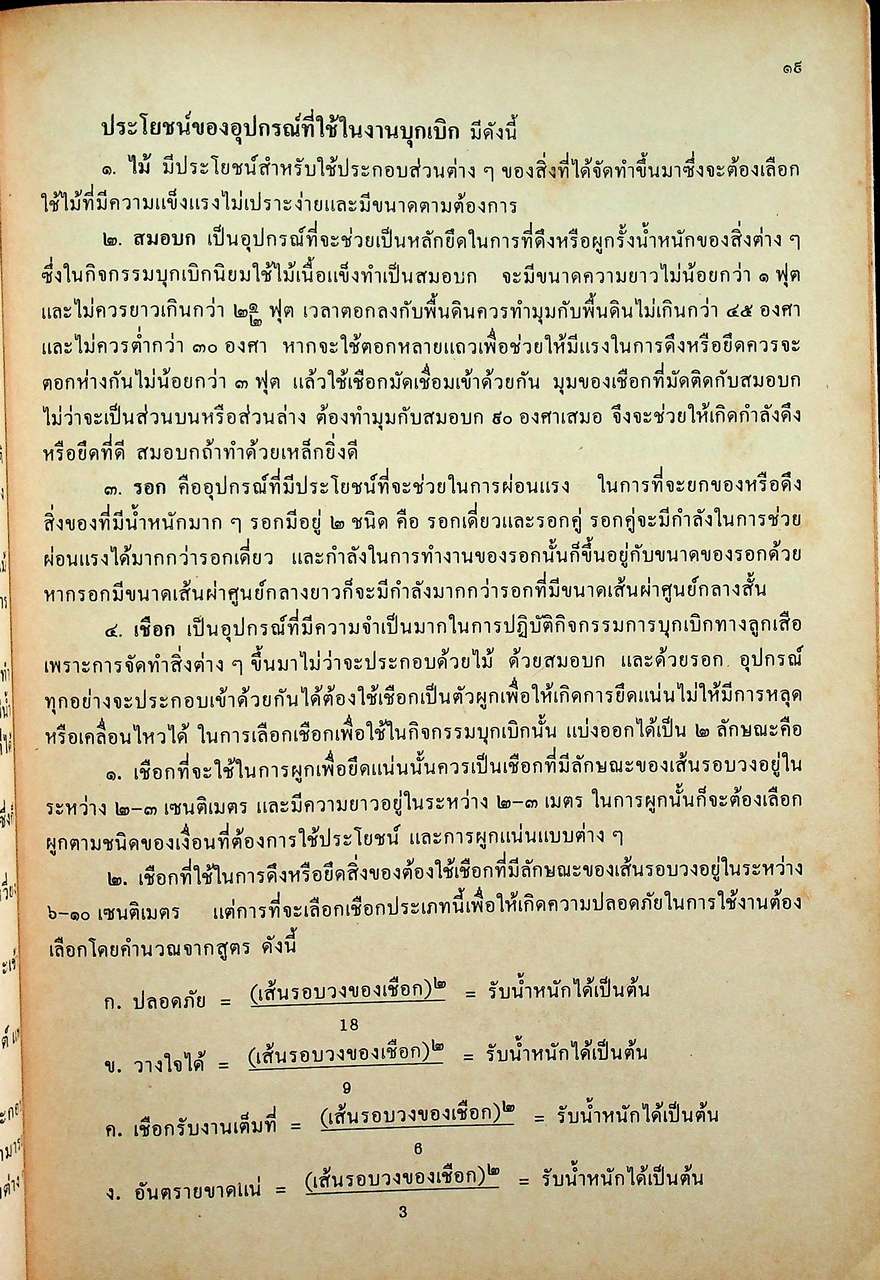 ๑๙
ประโยชน์ของอุปกรณ์ที่ใช้ในงานบุกเบิก มีดังนี้
๑. ไม้ มีประโยชน์สำหรับใช้ประกอบส่วนต่าง ๆ ของสิ่งที่ได้จัดทำขึ้นมาซึ่งจะต้องเลือก
ใช้ไม้ที่มีความแข็งแรงไม่เปราะง่ายและมีขนาดตามต้องการ
๒. สมอบก เป็นอุปกรณ์ที่จะช่วยเป็นหลักยึดในการที่ดึงหรือผูกรั้งน้ำหนักของสิ่งต่าง ๆ
ซึ่งในกิจกรรมบุกเบิกนิยมใช้ไม้เนื้อแข็งทำเป็นสมอบก จะมีขนาดความยาวไม่น้อยกว่า ๑ ฟุต
และไม่ควรยาวเกินกว่า ๒๑/๒ ฟุต เวลาตอกลงกับพื้นดินควรทำมุมกับพื้นดินไม่เกินกว่า ๔๕ องศา
และไม่ควรต่ำกว่า ๓๐ องศา หากจะใช้ตอกหลายแถวเพื่อช่วยให้มีแรงในการดึงหรือยึดควรจะ
ตอกห่างกันไม่น้อยกว่า ๓ ฟุต แล้วใช้เชือกมัดเชื่อมเข้าด้วยกัน มุมของเชือกที่มัดติดกับสมอบก
ไม่ว่าจะเป็นส่วนบนหรือส่วนล่าง ต้องทำมุมกับสมอบก ๙๐ องศาเสมอ จึงจะช่วยให้เกิดกำลังดึง
หรือยึดที่ดี สมอบกถ้าทำด้วยเหล็กยิ่งดี
๓. รอก คืออุปกรณ์ที่มีประโยชน์ที่จะช่วยในการผ่อนแรง ในการที่จะยกของหรือดึง
สิ่งของที่มีน้ำหนักมาก ๆ รอกมีอยู่ ๒ ชนิด คือ รอกเดี่ยวและรอกคู่ รอกคู่จะมีกำลังในการช่วย
ผ่อนแรงได้มากกว่ารอกเดี่ยว และกำลังในการทำงานของรอกนั้นก็ขึ้นอยู่กับขนาดของรอกด้วย
หากรอกมีขนาดเส้นผ่าศูนย์กลางยาวก็จะมีกำลังมากกว่ารอกที่มีขนาดเส้นผ่าศูนย์กลางสั้น
๔. เชือก เป็นอุปกรณ์ที่มีความจำเป็นมากในการปฏิบัติกิจกรรมการบุกเบิกทางลูกเสือ
เพราะการจัดทำสิ่งต่าง ๆ ขึ้นมาไม่ว่าจะประกอบด้วยไม้ ด้วยสมอบก และด้วยรอก อุปกรณ์
ทุกอย่างจะประกอบเข้าด้วยกันได้ต้องใช้เชือกเป็นตัวผูกเพื่อให้เกิดการยึดแน่นไม่ให้มีการหลุด
หรือเคลื่อนไหวได้ ในการเลือกเชือกเพื่อใช้ในกิจกรรมบุกเบิกนั้น แบ่งออกได้เป็น ๒ ลักษณะคือ
๑. เชือกที่จะใช้ในการผูกเพื่อยึดแน่นนั้นควรเป็นเชือกที่มีลักษณะของเส้นรอบวงอยู่ใน
ระหว่าง ๒-๓ เซนติเมตร และมีความยาวอยู่ในระหว่าง ๒-๓ เมตร ในการผูกนั้นก็จะต้องเลือก
ผูกตามชนิดของเงื่อนที่ต้องการใช้ประโยชน์ และการผูกแน่นแบบต่าง ๆ
๒. เชือกที่ใช้ในการดึงหรือยึดสิ่งของต้องใช้เชือกที่มีลักษณะของเส้นรอบวงอยู่ในระหว่าง
๖-๑๐ เซนติเมตร แต่การที่จะเลือกเชือกประเภทนี้เพื่อให้เกิดความปลอดภัยในการใช้งานต้อง
เลือกโดยคำนวณจากสูตร ดังนี้
ก. ปลอดภัย = (เส้นรอบวงของเชือก)๒ = รับน้ำหนักได้เป็นตัน
18
ข. วางใจได้ = (เส้นรอบวงของเชือก)๒ = รับน้ำหนักได้เป็นตัน
9
ค. เชือกรับงานเต็มที่ = (เส้นรอบวงของเชือก)๒ = รับน้ำหนักได้เป็นตัน
6
ง. อันตรายขาดแน่ = (เส้นรอบวงของเชือก)๒ = รับน้ำหนักได้เป็นตัน
3